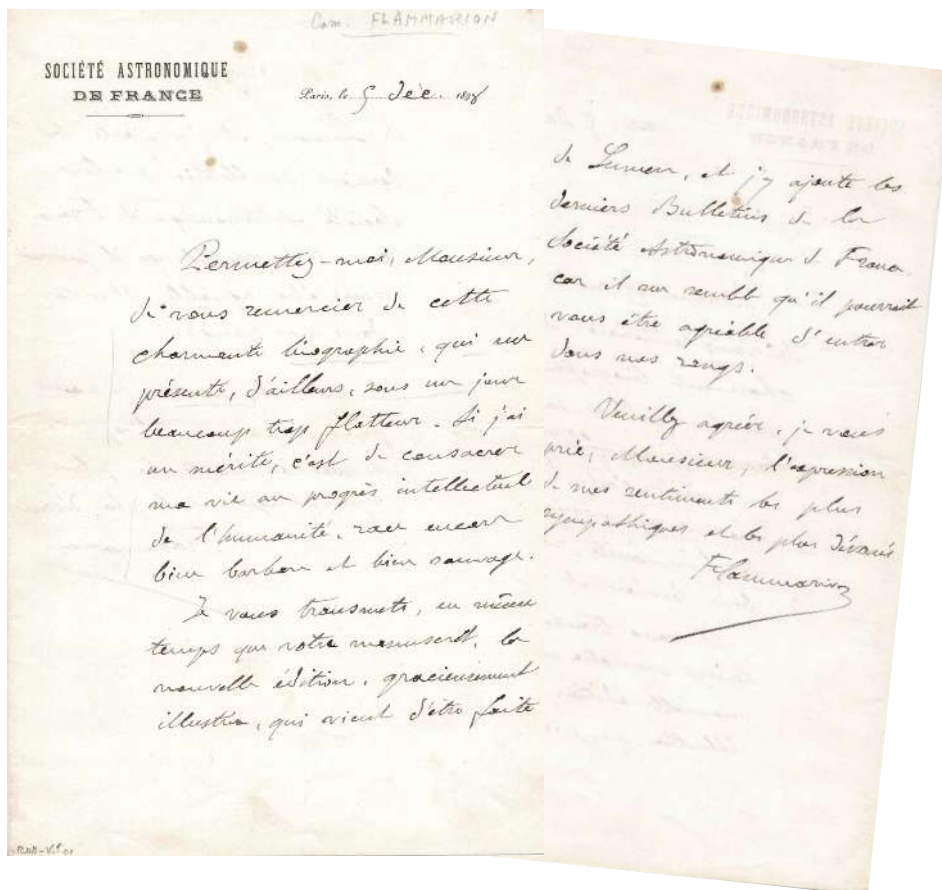 Cam. FLAMMARION
SOCIÉTÉ ASTRONOMIQUE
DE FRANCE
Paris, le 5 Déc. 189
Permettez-moi, Monsieur,
de vous remercier de cette
charmante biographie, qui me
présente, d'ailleurs, sous un jour
beaucoup trop flatteur. Si j'ai
un mérite, c'est de consacrer
ma vie au progrès intellectuel
de l'humanité, race encore
bien barbare et bien sauvage.
Je vous transmets, en même
temps que votre manuscrit, la
nouvelle édition, gracieusement
illustrée, qui vient d'être faite
de Lumen, et j'y ajoute les
derniers Bulletins de la
Société Astronomique de France
car il me semble qu'il pourrait
vous être agréable d'entrer
dans nos rangs.
Veuillez agréer, je vous
prie, Monsieur, l'expression
de mes sentiments les plus
sympathiques et les plus dévoués
Flammarion